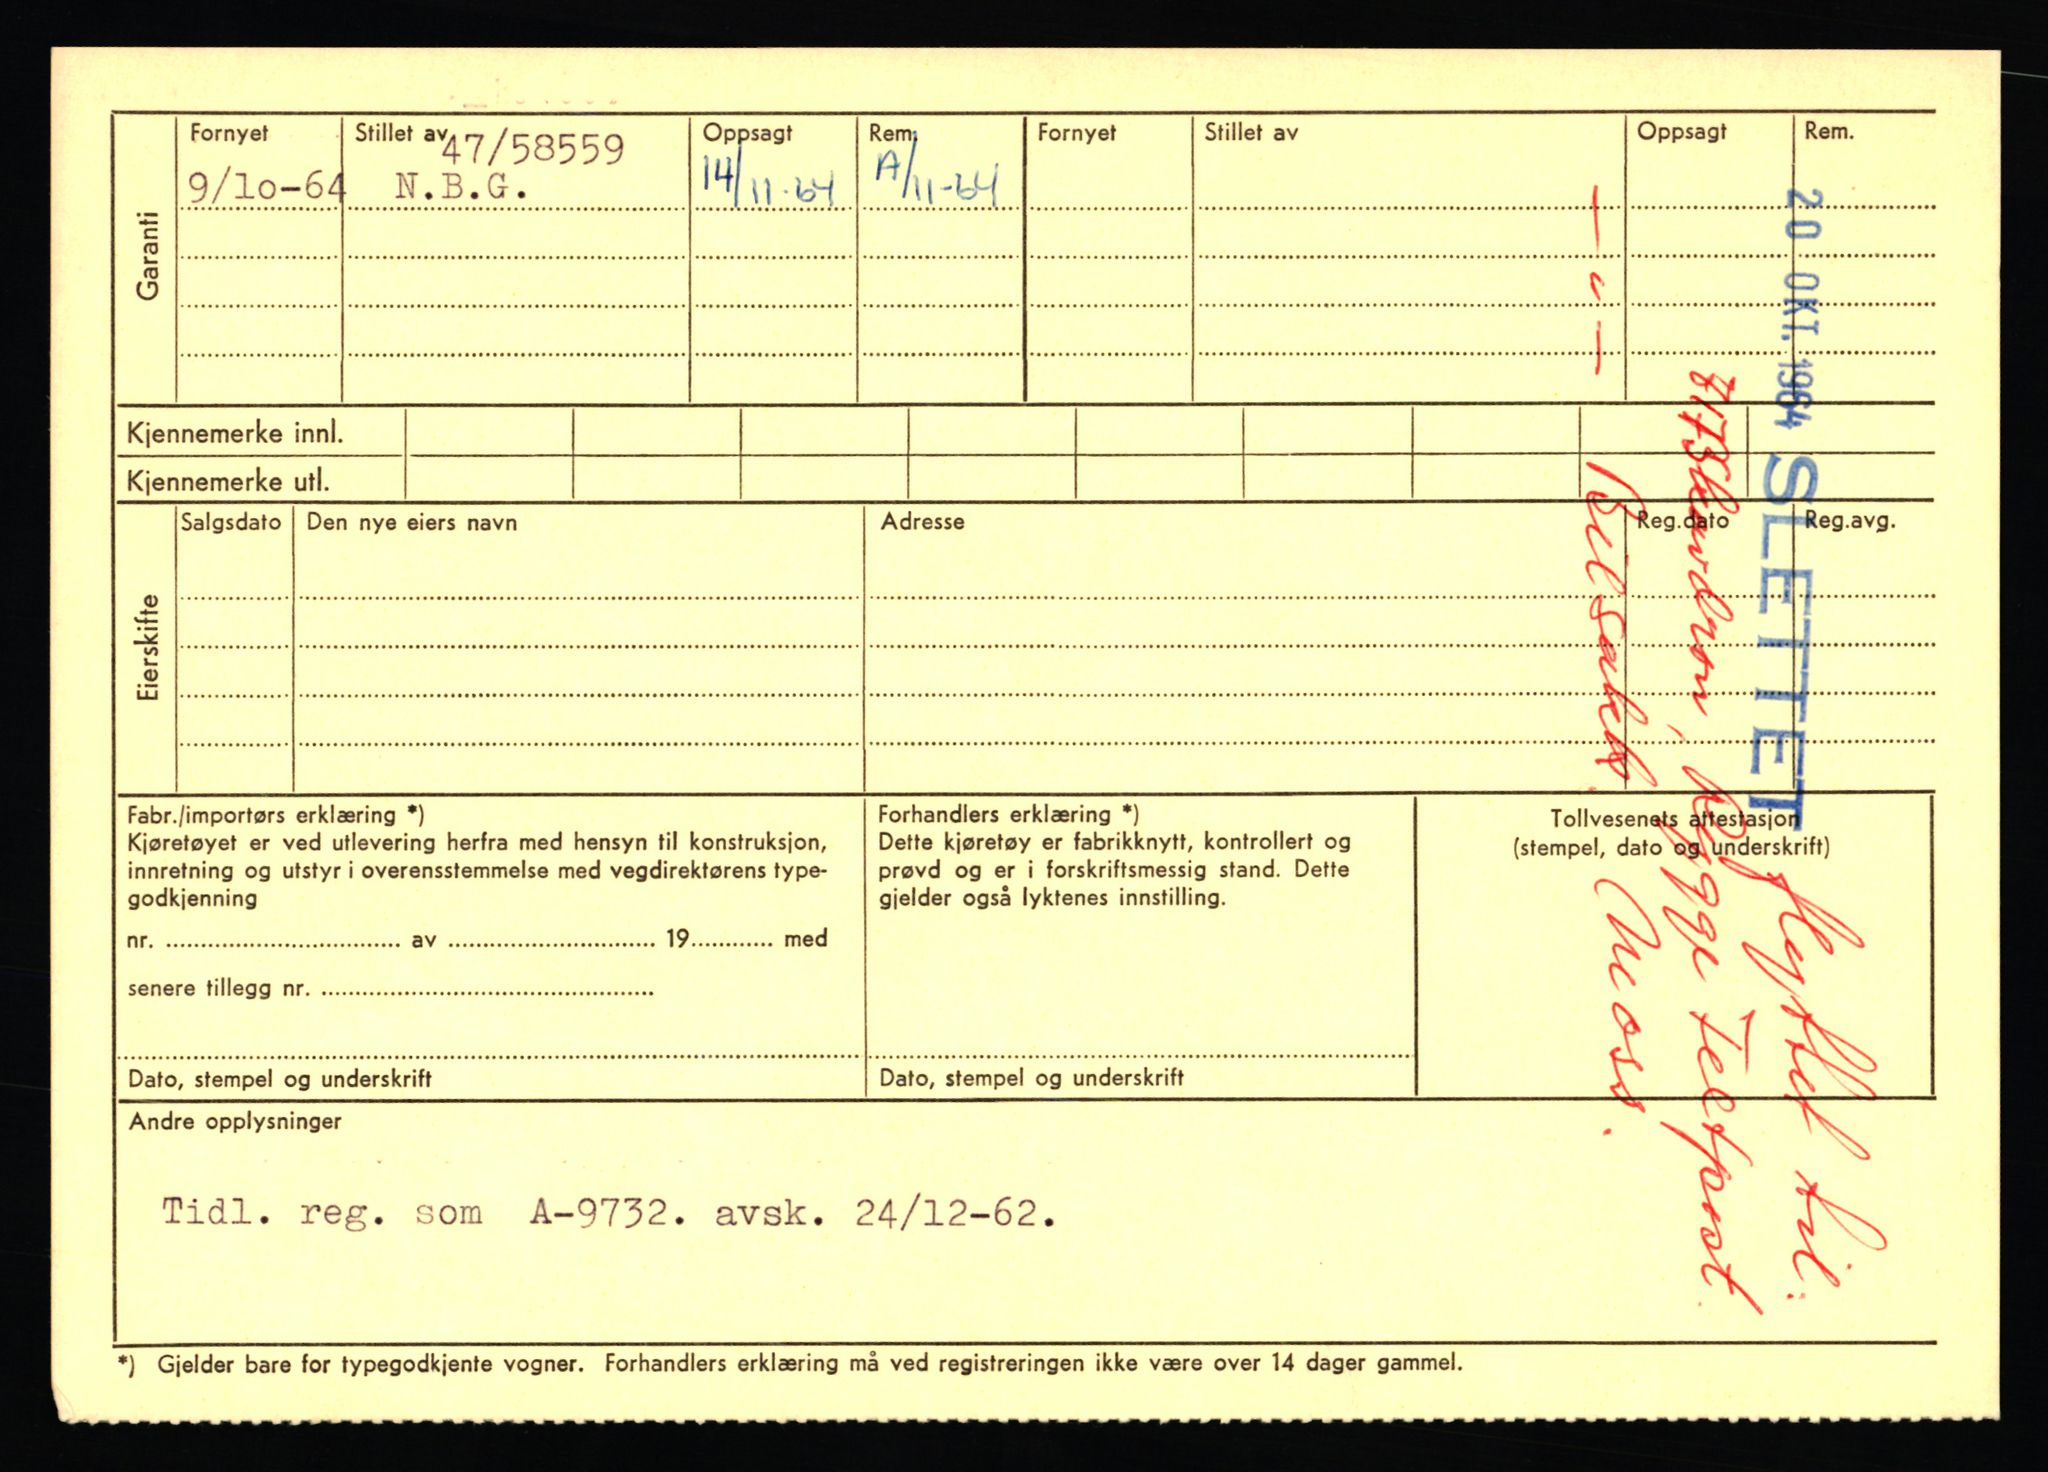 Garanti
Fornyet Stillet av Oppsagt Rem. Fornyet Stillet av Oppsagt Rem.
47/58559
9/1o-64 N.B.G. 14/11-64 A/11-64
Kjennemerke innl.
Kjennemerke utl.
Eierskifte
Salgsdato Den nye eiers navn Adresse Reg.dato Reg.avg.
Fabr./importørs erklæring *)
Kjøretøyet er ved utlevering herfra med hensyn til konstruksjon,
innretning og utstyr i overensstemmelse med vegdirektørens type-
godkjenning
nr. ........ av ........ 19........ med
senere tillegg nr. ........
Dato, stempel og underskrift
Forhandlers erklæring *)
Dette kjøretøy er fabrikknytt, kontrollert og
prøvd og er i forskriftsmessig stand. Dette
gjelder også lyktenes innstilling.
Dato, stempel og underskrift
Tollvesenets attestasjon
(stempel, dato og underskrift)
Andre opplysninger
Tidl. reg. som A-9732. avsk. 24/12-62.
*) Gjelder bare for typegodkjente vogner. Forhandlers erklæring må ved registreringen ikke være over 14 dager gammel.
20 OKT. 1964 SLETTET
flyttet til:
Rygge
— " — Bilsakk. Moss.